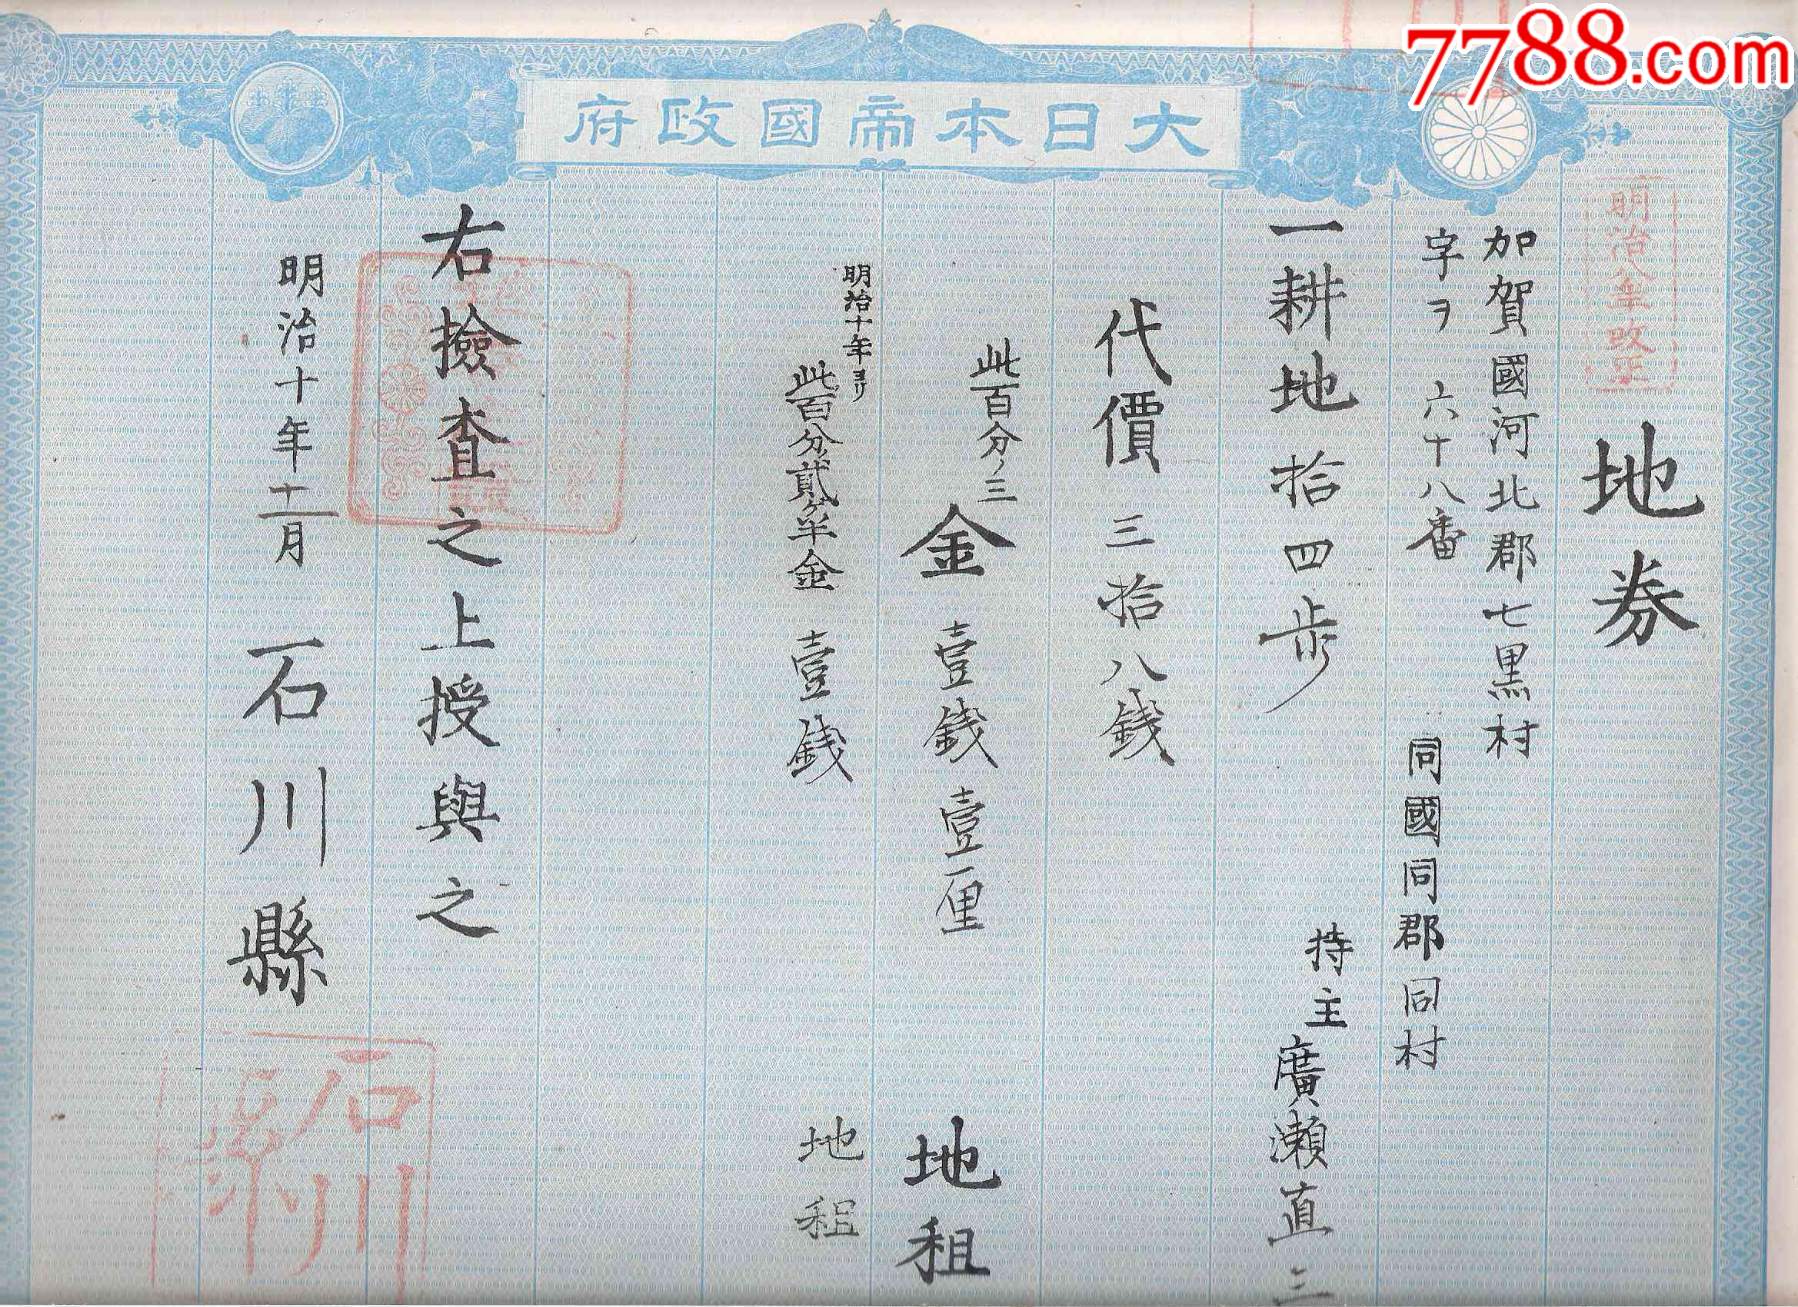 7788.com
大日本帝國政府
明治年改正
地券
加賀國河北郡七黒村
字ヲ 六十八番
同國同郡同村
一耕地拾四歩
持主 廣瀬直二
代價三拾八錢
此百分ノ三
金壹錢壹厘
地租
明治十年ヨリ
此百分貳ヶ半金 壹錢
地租
右撿査之上授與之
明治十年十一月
石川縣
石川縣